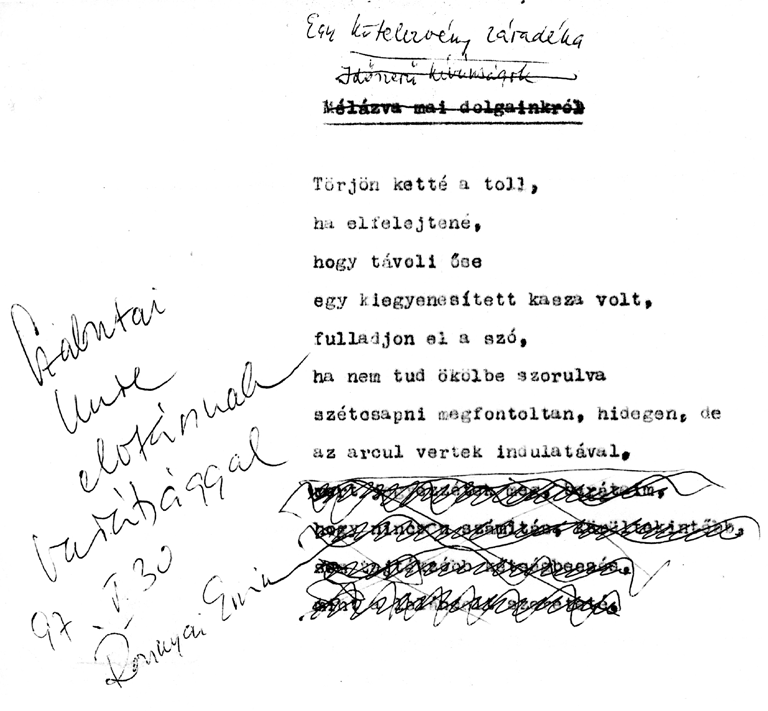 Egy kötelezvény záradéka
Időszerű kívánságok
Mélázva mai dolgainkról
Törjön ketté a toll,
ha elfelejtené,
hogy távoli őse
egy kiegyenesített kasza volt,
fulladjon el a szó,
ha nem tud ökölbe szorulva
szétcsapni megfontoltan, hidegen, de
az arcul vertek indulatával,
meg, barátaim,
hogy nincs számítás,
Imre
barátsággal
97. V. 30